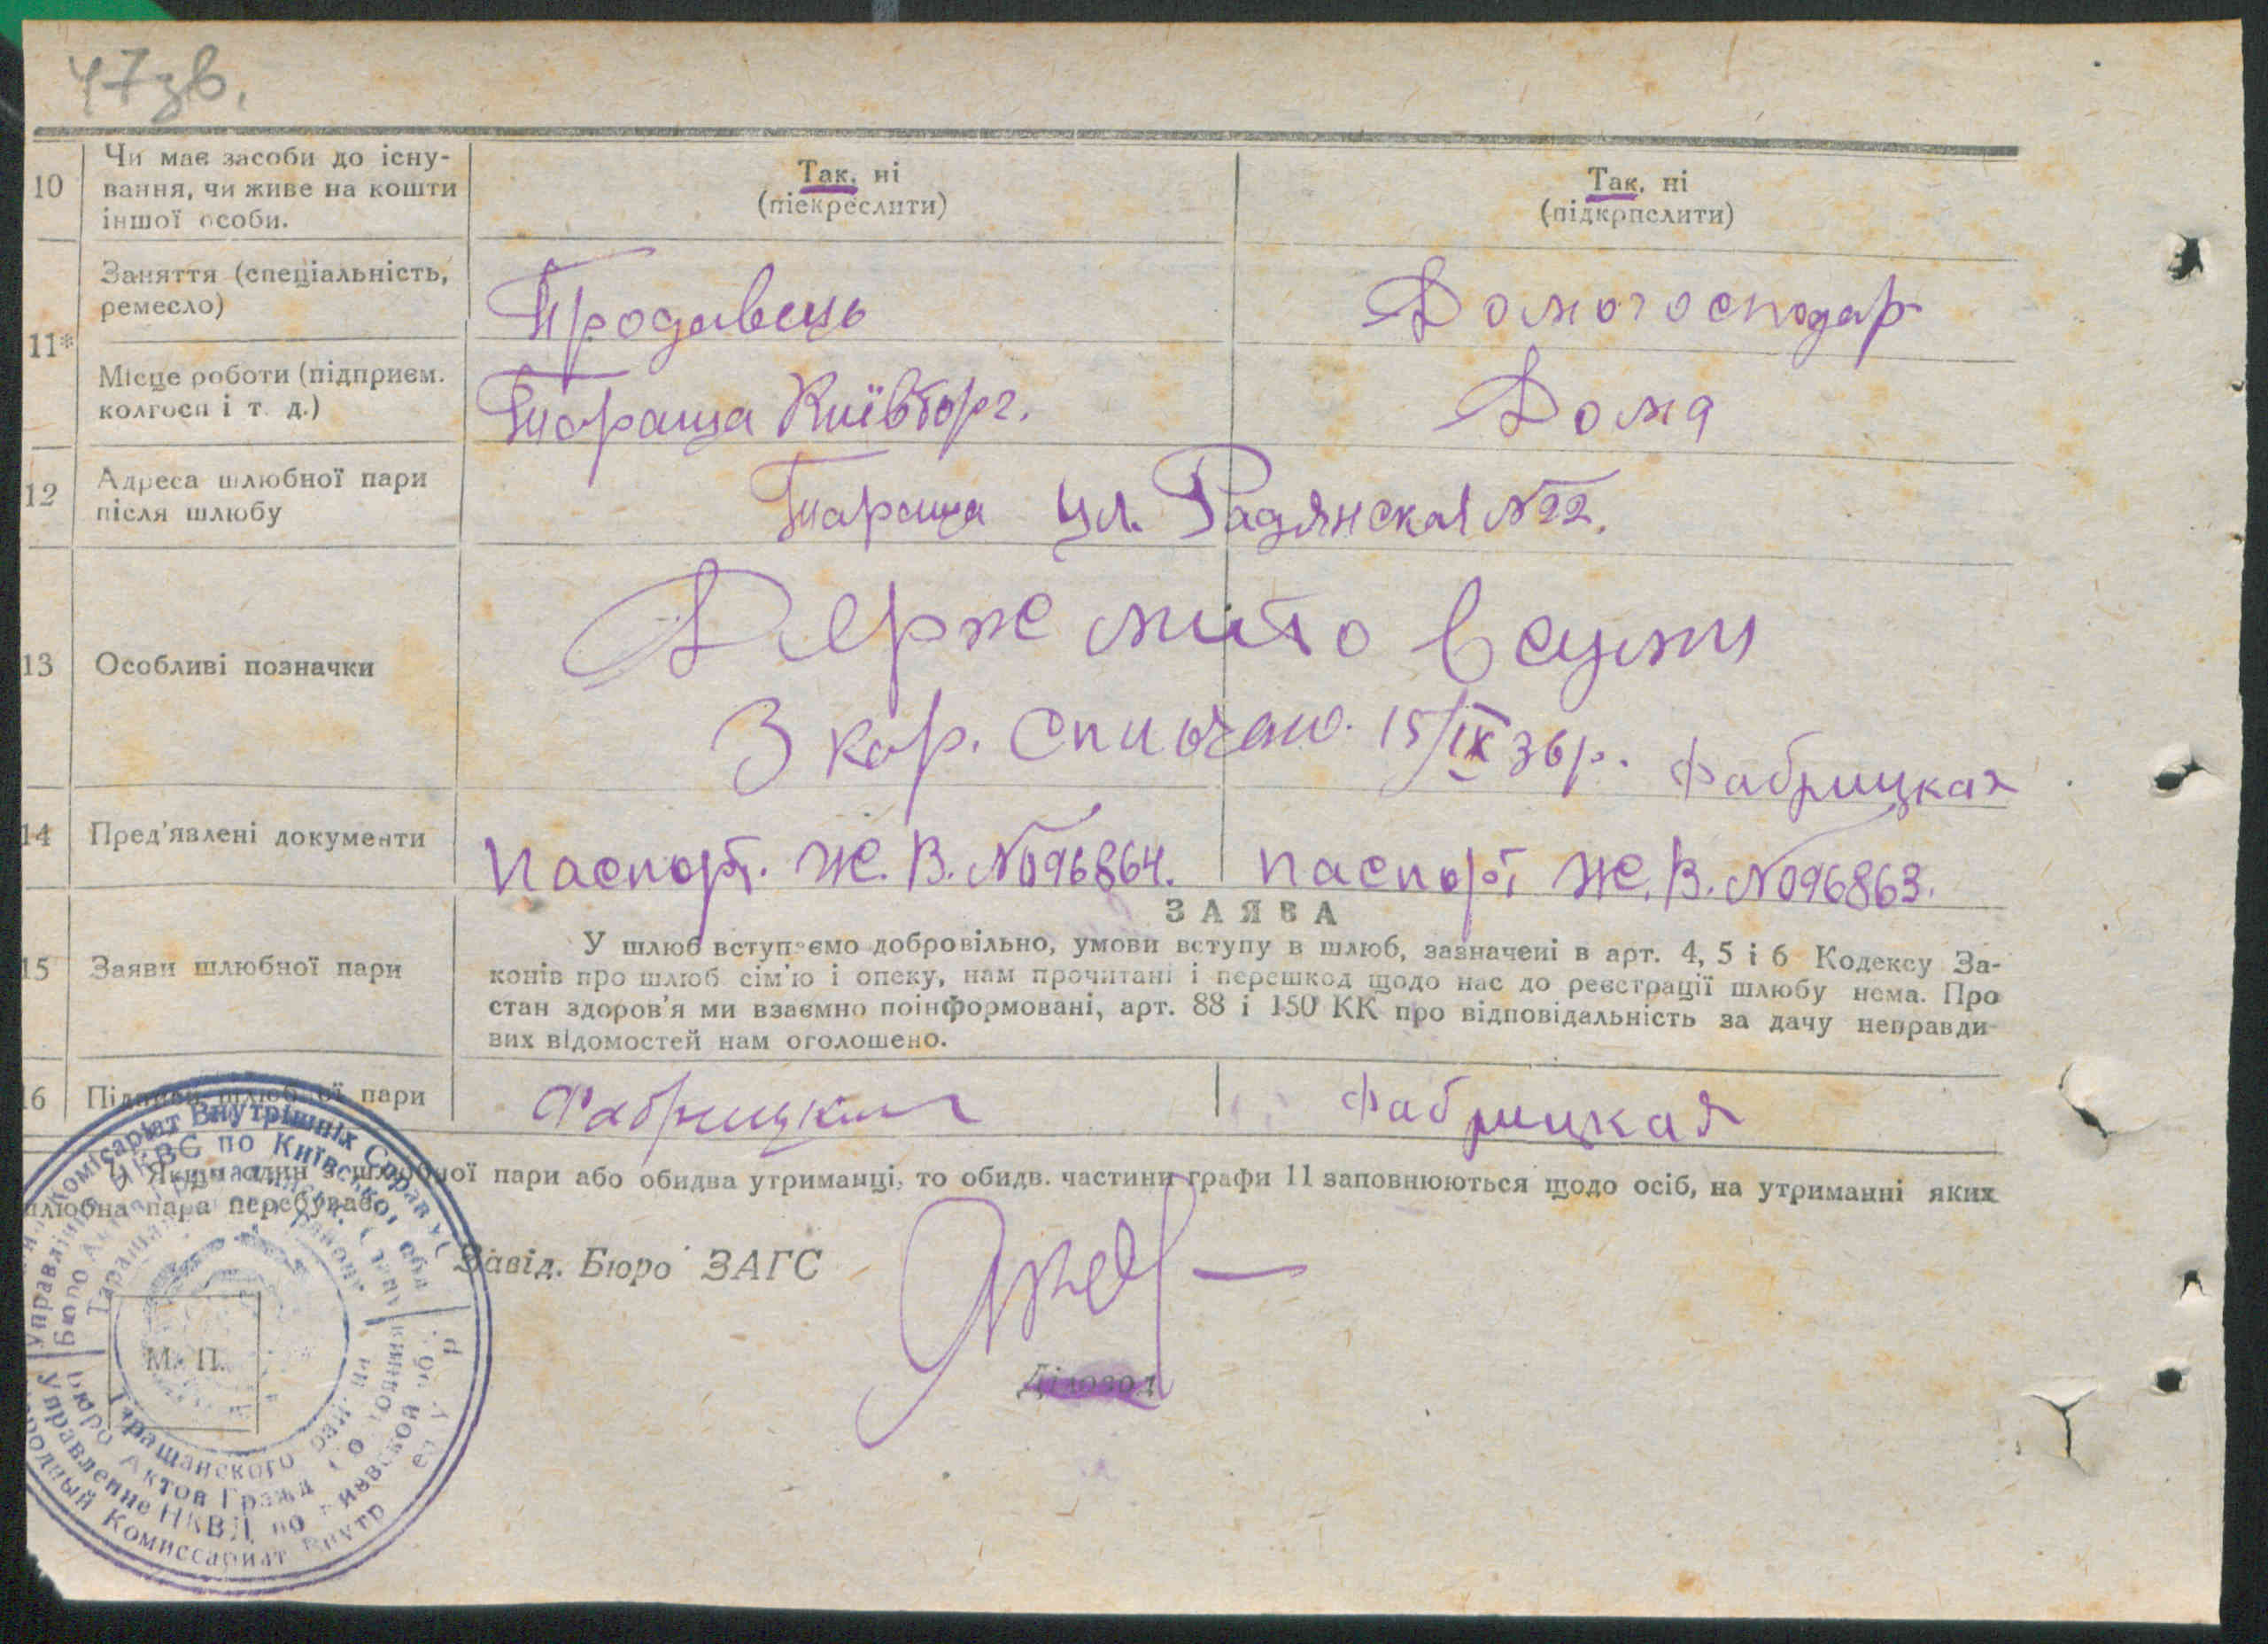 47 зв.
10
Чи має засоби до існу-
вання, чи живе на кошти
іншої особи.
Так, ні
(піекреслити)
Так, ні
(підкрпслити)
11*
Заняття (спеціальність,
ремесло)
Продавець
Домогосподар
Місце роботи (підприєм.
колгосп і т. д.)
Тараща Київторг.
Дома
12
Адреса шлюбної пари
після шлюбу
Тараща ул. Радянская №22.
13
Особливі позначки
Держ мито в сумі
3 кар. 15/IX 36р. Фабрицкая
14
Пред'явлені документи
Паспорт. Ж.В. №096864.
Паспорт Ж.В. №096863.
15
Заяви шлюбної пари
ЗАЯВА
У шлюб вступаємо добровільно, умови вступу в шлюб, зазначені в арт. 4, 5 і 6 Кодексу За-
конів про шлюб сім'ю і опеку, нам прочитані і перешкод щодо нас до реєстрації шлюбу нема. Про
стан здоров'я ми взаємно поінформовані, арт. 88 і 150 КК про відповідальність за дачу неправди-
вих відомостей нам оголошено.
16
Підписи шлюбної пари
Фабрицкий
Фабрицкая
Якщо один з шлюбної пари або обидва утриманці, то обидв. частини графи 11 заповнюються щодо осіб, на утриманні яких
шлюбна пара перебуває.
Завід. Бюро ЗАГС
Діловод
М. П.
Комісаріат Внутрішніх Справ
Управління НКВС по Київській обл.
Таращанского
Бюро Актов Гражд
Управление НКВД по Киевской обл.
Народный Комиссариат Внутр